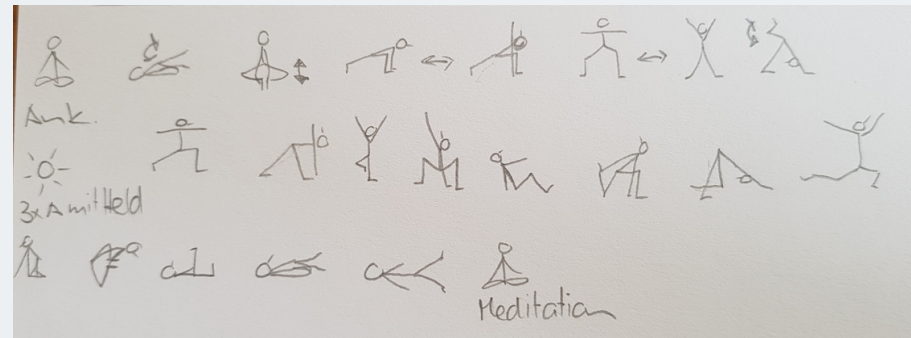 Ank.
3x A mit Held
Meditation